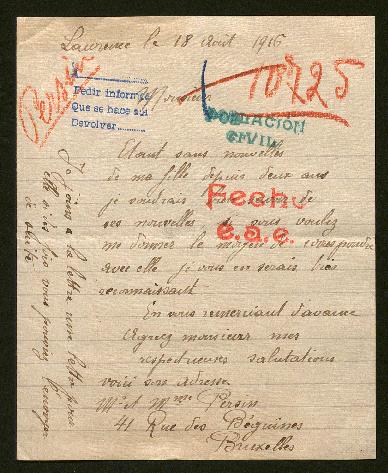 Laurence le 18 Août 1916
Persin
Pedir informe
Que se hace aqui
Devolver
Monsieur
18725
POBLACION
CIVIL
Etant sans nouvelles
de ma fille depuis deux ans
je voudrais bien savoir de
ses nouvelles si vous voulez
me donner le moyen de correspondre
avec elle je vous en serais bien
reconnaissant
Fecho
e.a.e.
En vous remerciant d'avance
Agréez monsieur mes
respectueuses salutations
voici son adresse
Mr et Mme Persin
41 Rue des Béguines
Bruxelles
Je joins a la lettre une lettre pour
elle si des fois vous pourriez l'envoyer